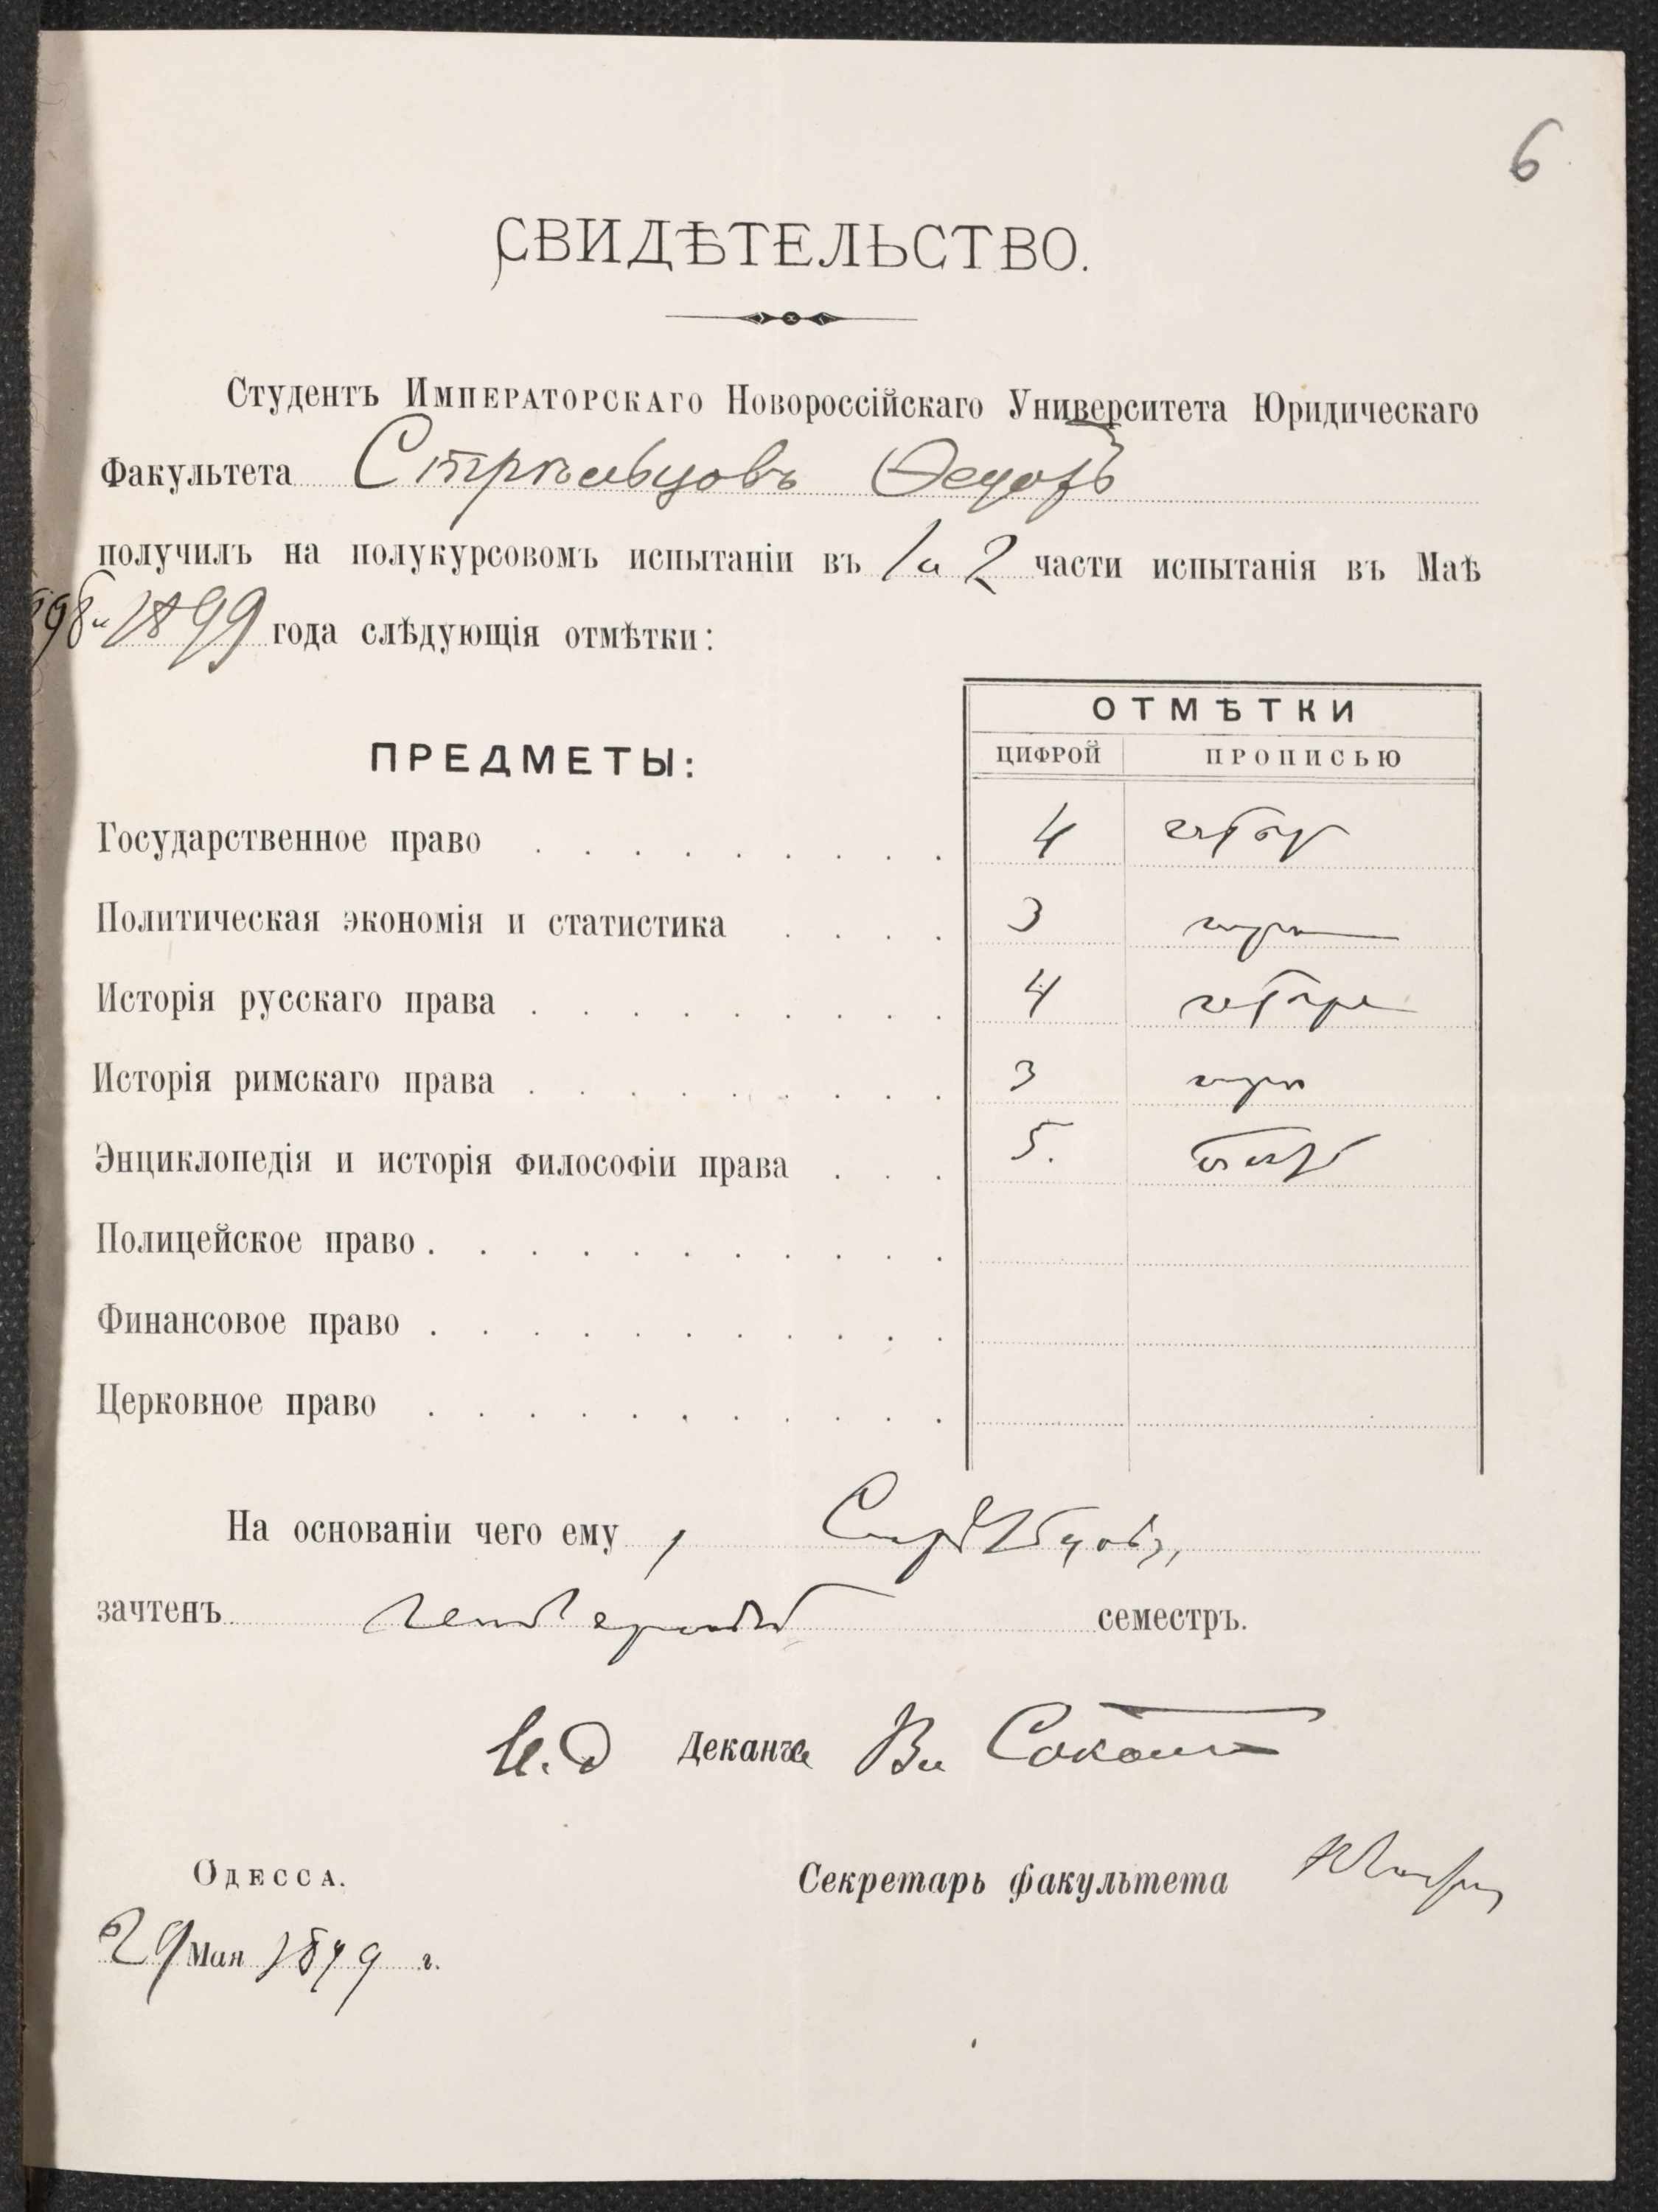 6
СВИДѢТЕЛЬСТВО.
Студентъ ИМПЕРАТОРСКАГО Новороссійскаго Университета Юридическаго
Факультета Стрѣльцовъ Ѳедоръ
получилъ на полукурсовомъ испытаніи въ 1 и 2 части испытанія въ Маѣ
898 и 1899 года слѣдующія отмѣтки:
ОТМѢТКИ
ПРЕДМЕТЫ: ЦИФРОЙ ПРОПИСЬЮ
Государственное право . . . . . . . . . 4
Политическая экономія и статистика . . . . 3 три
Исторія русскаго права . . . . . . . . . 4 четыре
Исторія римскаго права . . . . . . . . . 3 три
Энциклопедія и исторія философіи права . . . 5.
Полицейское право . . . . . . . . . . .
Финансовое право . . . . . . . . . . .
Церковное право . . . . . . . . . . .
На основаніи чего ему, Стрѣльцову,
зачтенъ четвертый семестръ.
И.д Декана Вл
Одесса. Секретарь факультета
29 Мая 1899 г.